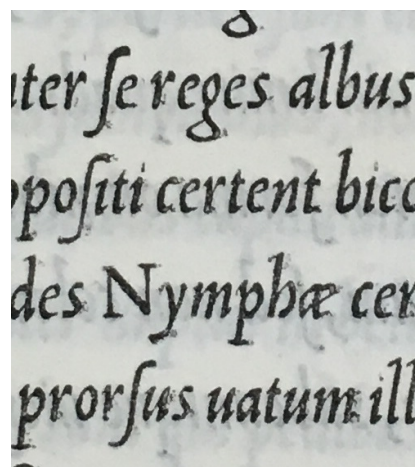 ter ſe reges albus
poſiti certent bico
des Nymphæ cer
prorſus uatum ill